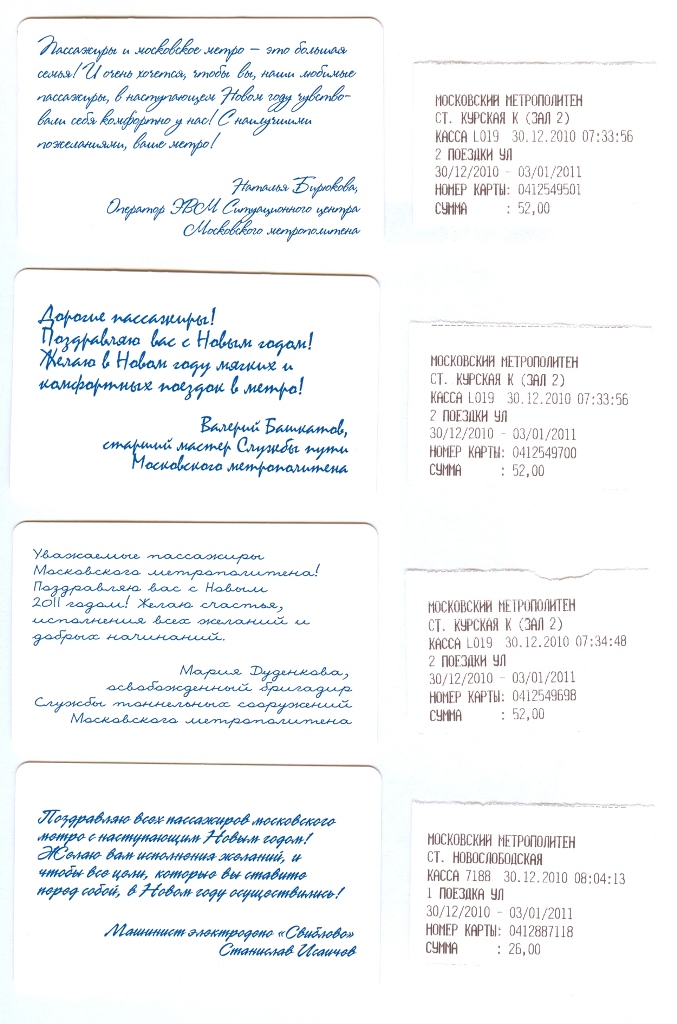 Пассажиры и московское метро – это большая
семья! И очень хочется, чтобы вы, наши любимые
пассажиры, в наступающем Новом году чувство-
вали себя комфортно у нас! С наилучшими
пожеланиями, ваше метро!
Наталья Бирюкова,
Оператор ЭВМ Ситуационного центра
Московского метрополитена
МОСКОВСКИЙ МЕТРОПОЛИТЕН
СТ. КУРСКАЯ К (ЗАЛ 2)
КАССА L019 30.12.2010 07:33:56
2 ПОЕЗДКИ УЛ
30/12/2010 - 03/01/2011
НОМЕР КАРТЫ: 0412549501
СУММА : 52,00
Дорогие пассажиры!
Поздравляю вас с Новым годом!
Желаю в Новом году мягких и
комфортных поездок в метро!
Валерий Башкатов,
старший мастер Службы пути
Московского метрополитена
МОСКОВСКИЙ МЕТРОПОЛИТЕН
СТ. КУРСКАЯ К (ЗАЛ 2)
КАССА L019 30.12.2010 07:33:56
2 ПОЕЗДКИ УЛ
30/12/2010 - 03/01/2011
НОМЕР КАРТЫ: 0412549700
СУММА : 52,00
Уважаемые пассажиры
Московского метрополитена!
Поздравляю вас с Новым
2011 годом! Желаю счастья,
исполнения всех желаний и
добрых начинаний.
Мария Дуденкова,
освобожденный бригадир
Службы тоннельных сооружений
Московского метрополитена
МОСКОВСКИЙ МЕТРОПОЛИТЕН
СТ. КУРСКАЯ К (ЗАЛ 2)
КАССА L019 30.12.2010 07:34:48
2 ПОЕЗДКИ УЛ
30/12/2010 - 03/01/2011
НОМЕР КАРТЫ: 0412549698
СУММА : 52,00
Поздравляю всех пассажиров московского
метро с наступающим Новым годом!
Желаю вам исполнения желаний, и
чтобы все цели, которые вы ставите
перед собой, в Новом году осуществились!
Машинист электродепо «Свиблово»
Станислав Исаичев
МОСКОВСКИЙ МЕТРОПОЛИТЕН
СТ. НОВОСЛОБОДСКАЯ
КАССА 7188 30.12.2010 08:04:13
1 ПОЕЗДКА УЛ
30/12/2010 - 03/01/2011
НОМЕР КАРТЫ: 0412887118
СУММА : 26,00